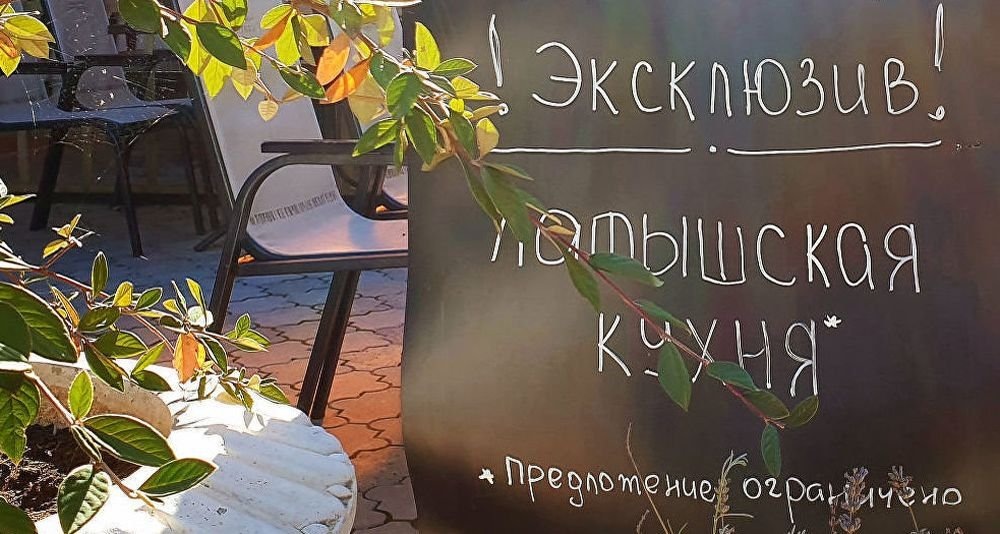 ! Эксклюзив!
Латышская
кухня*
*предложение ограничено